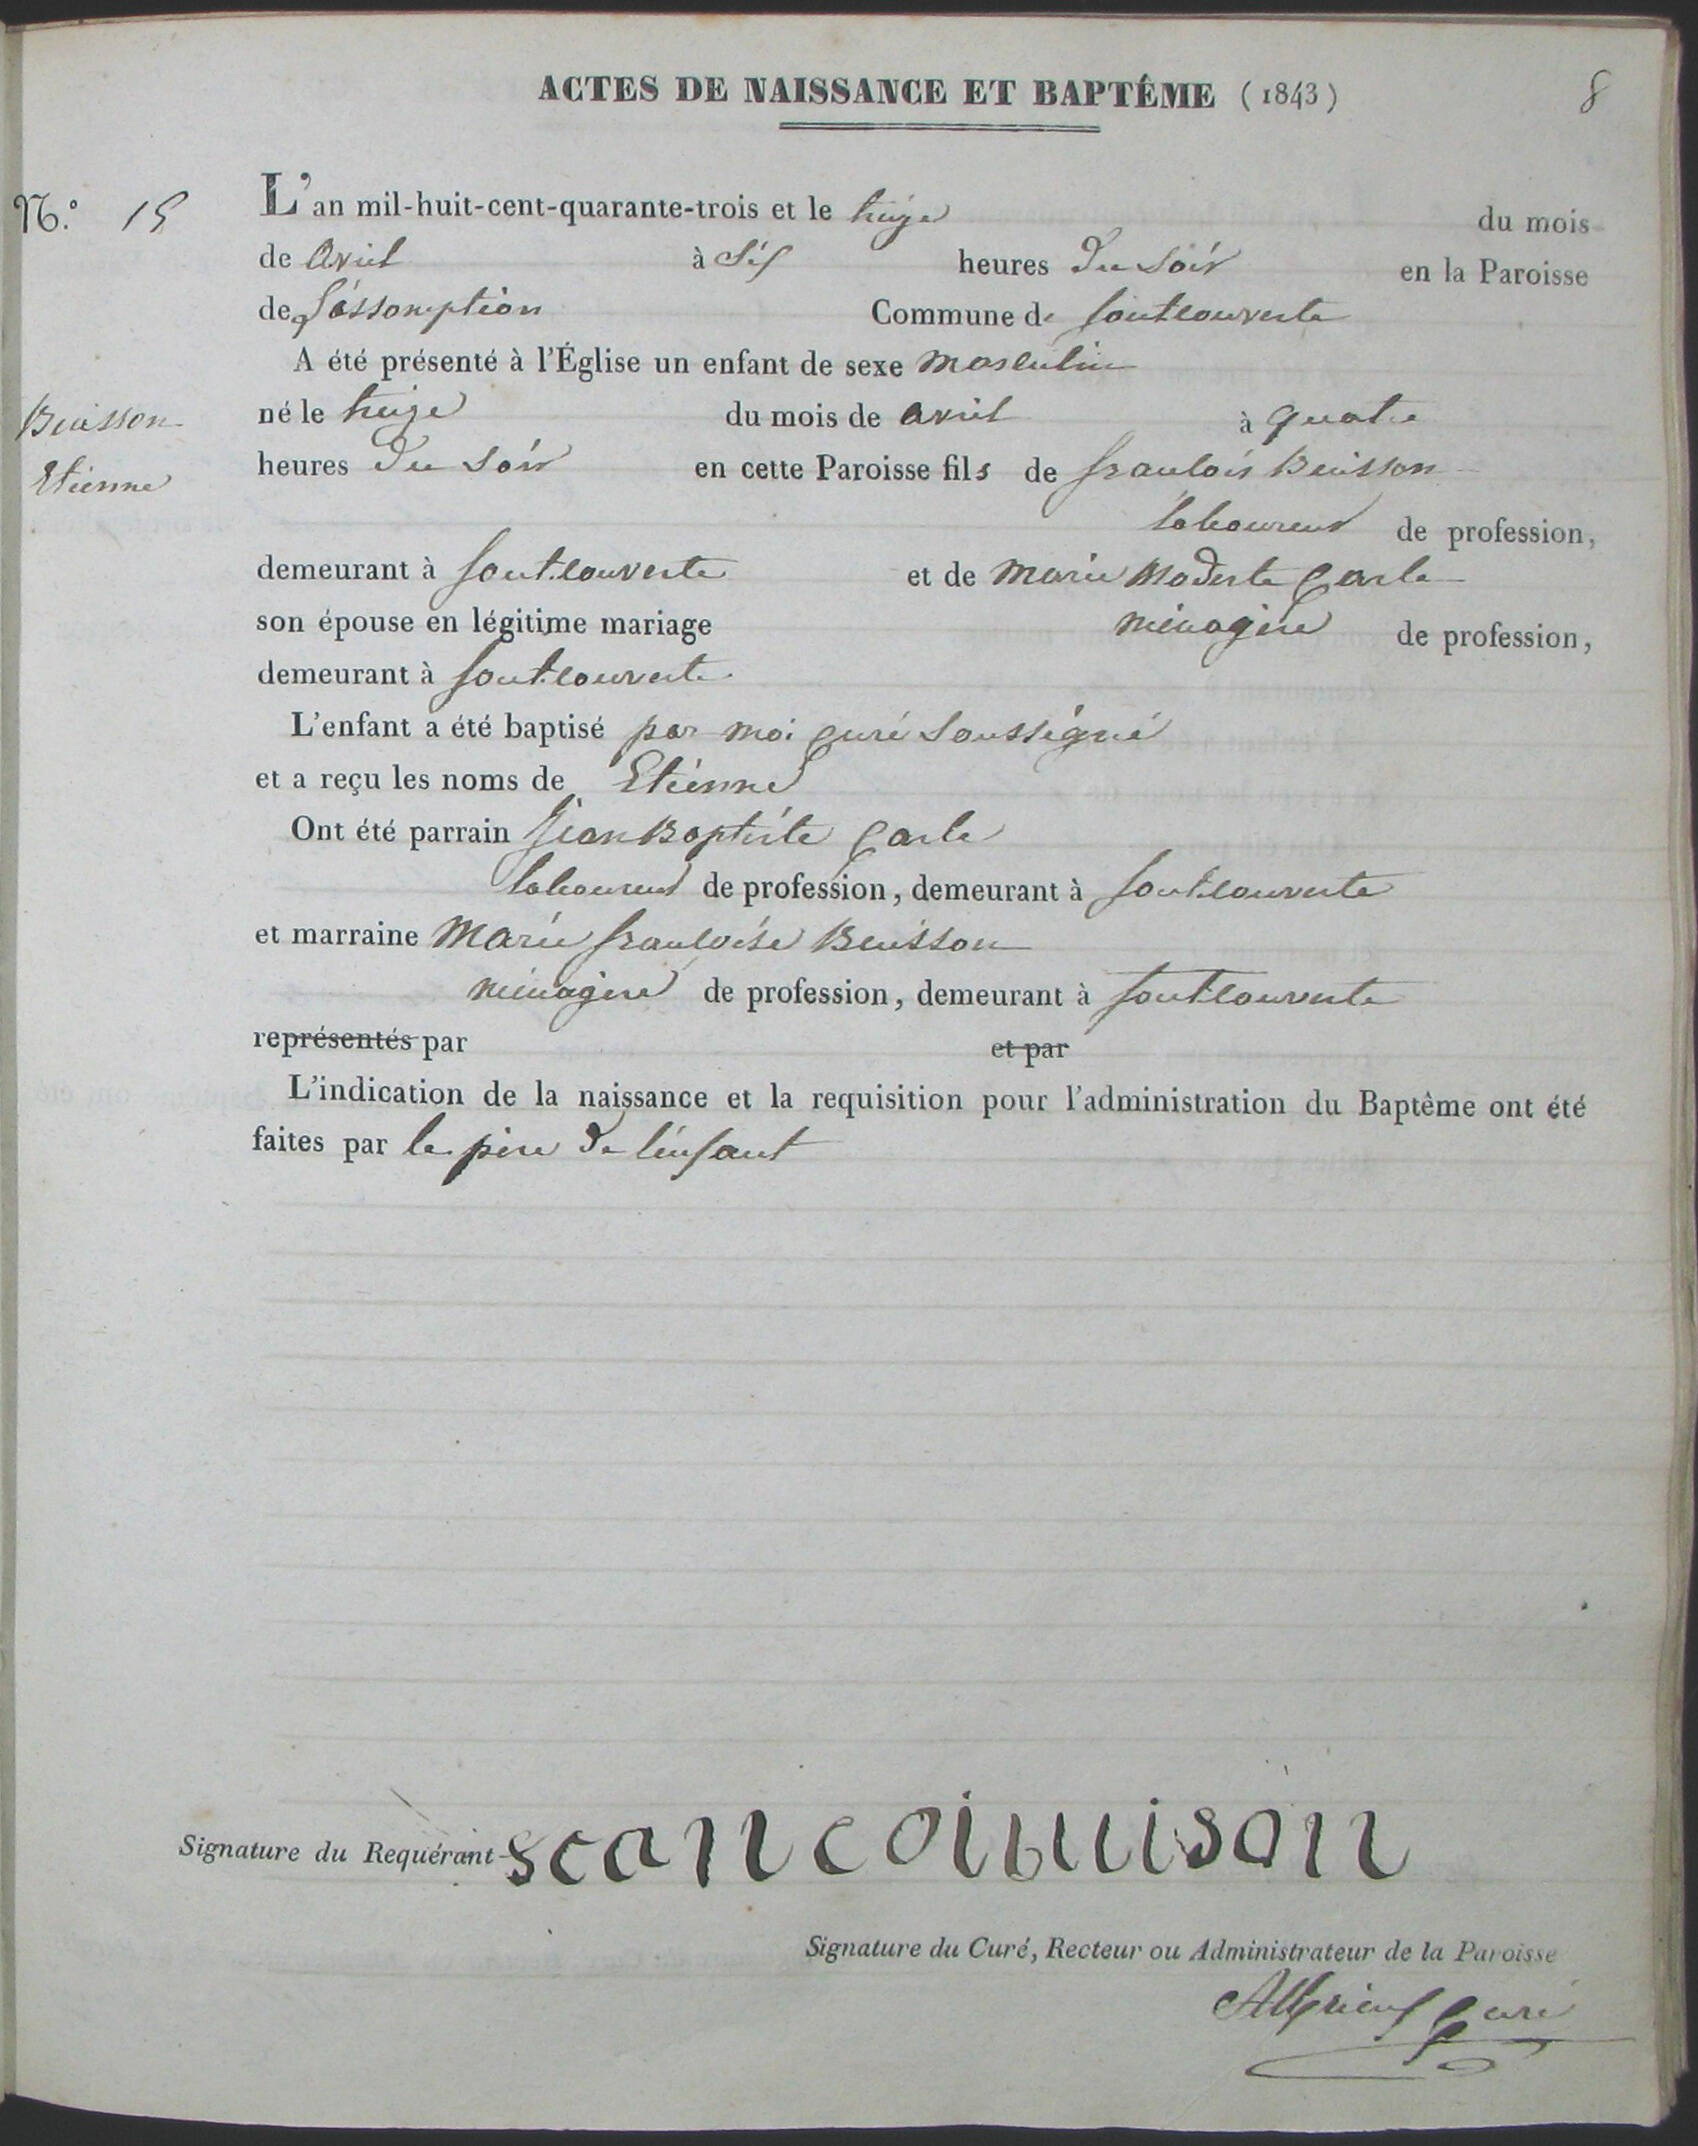 ACTES DE NAISSANCE ET BAPTÊME (1843) 8
N.º 15
L'an mil-huit-cent-quarante-trois et le treize du mois
de avril à six heures du soir en la Paroisse
de L'assomption Commune de fontcouverte
A été présenté à l'Église un enfant de sexe masculin
Buisson Etienne
né le treize du mois de avril à quatre
heures du soir en cette Paroisse fils de francois Buisson
laboureur de profession,
demeurant à fontcouverte et de marie Modeste Carle
son épouse en légitime mariage ménagere de profession,
demeurant à fontcouverte
L'enfant a été baptisé par moi curé soussigné
et a reçu les noms de Etienne
Ont été parrain Jean Baptiste Carle
laboureur de profession, demeurant à fontcouverte
et marraine Marie francoise Buisson
ménagere de profession, demeurant à fontcouverte
représentés par et par
L'indication de la naissance et la requisition pour l'administration du Baptême ont été
faites par le pere de l'enfant
Signature du Requérant
Signature du Curé, Recteur ou Administrateur de la Paroisse
curé